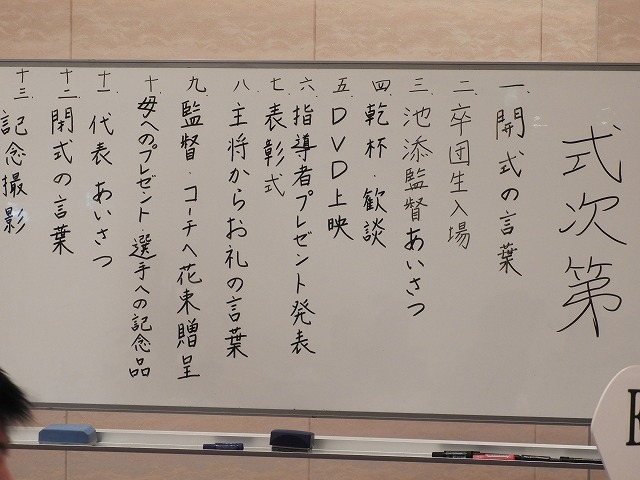 式次第
一、開式の言葉
二、卒団生入場
三、池添監督あいさつ
四、乾杯・歓談
五、DVD上映
六、指導者プレゼント発表
七、表彰式
八、主将からお礼の言葉
九、監督・コーチへ花束贈呈
十、母へのプレゼント・選手への記念品
十一、代表あいさつ
十二、閉式の言葉
十三、記念撮影
E